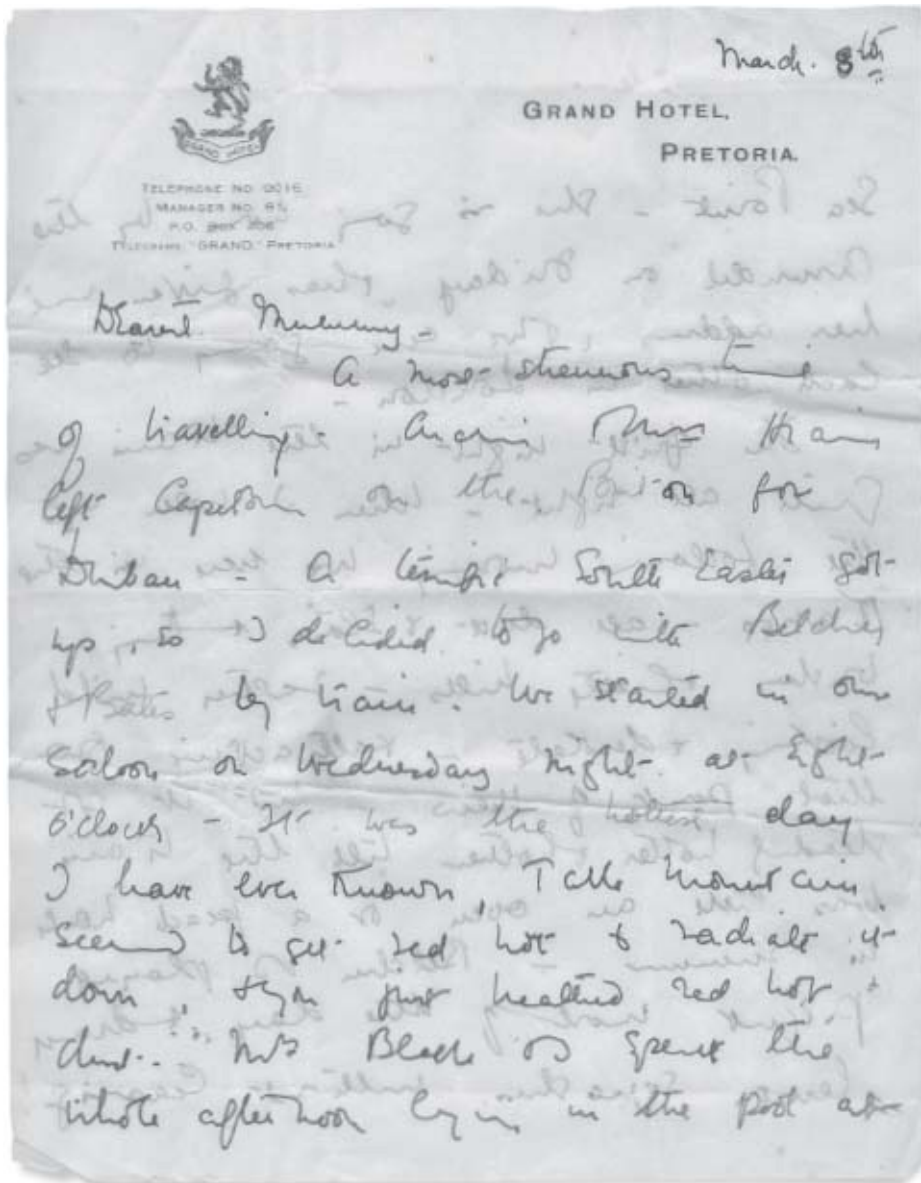 March. 8th
GRAND HOTEL,
PRETORIA.
GRAND HOTEL
TELEPHONE NO 0016
MANAGER NO. 91,
P.O. BOX 206
TELEGRAMS, "GRAND," PRETORIA
Dearest Mummy -
A most strenuous time
of travelling - Archie
left Capetown the on for
Durban - A terrific South Easter got
up, so I decided to go with Belcher
& Bates by train. We started in our
Saloon on Wednesday night at Eight
o'clock - It was the hottest day
I have ever known, Table Mountain
seemed to get red hot & radiate it
down, & you just breathed red hot
dust. Mrs Blake & I spent the
whole afternoon lying in the pool at